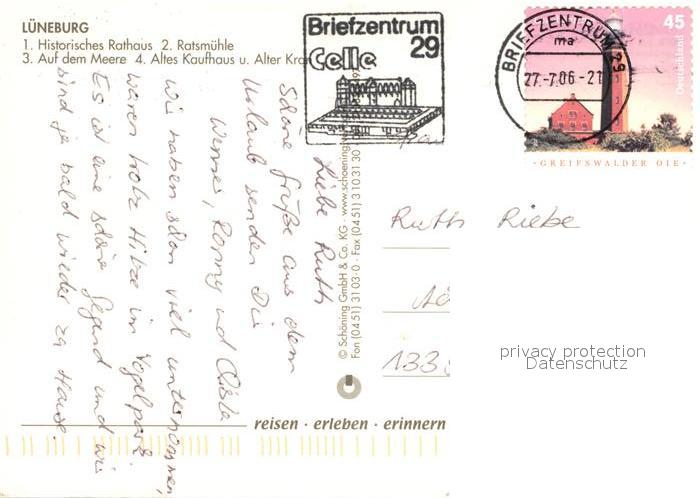 LÜNEBURG
1. Historisches Rathaus 2. Ratsmühle
3. Auf dem Meere 4. Altes Kaufhaus u. Alter Kra
Briefzentrum
29
Celle
BRIEFZENTRUM 29
ma
27.-7.06-21
45
Deutschland
·GREIFSWALDER OIE·
Liebe Ruth
Schöne Grüße aus dem
Urlaub senden Dir
Werner, Ronny und
Wir haben schon viel unternommen,
waren trotz Hitze im Vogelpark.
Es ist eine schöne Gegend und wir
sind ja bald wieder zu Hause.
© Schöning GmbH & Co. KG · www.schoening
Fon (0451) 3103-0 · Fax (0451) 3103130
Ruth Riebe
133
privacy protection
Datenschutz
reisen · erleben · erinnern